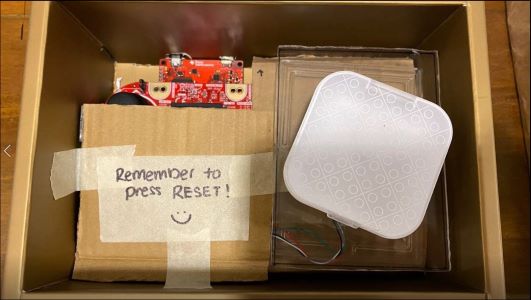 Remember to
press RESET!